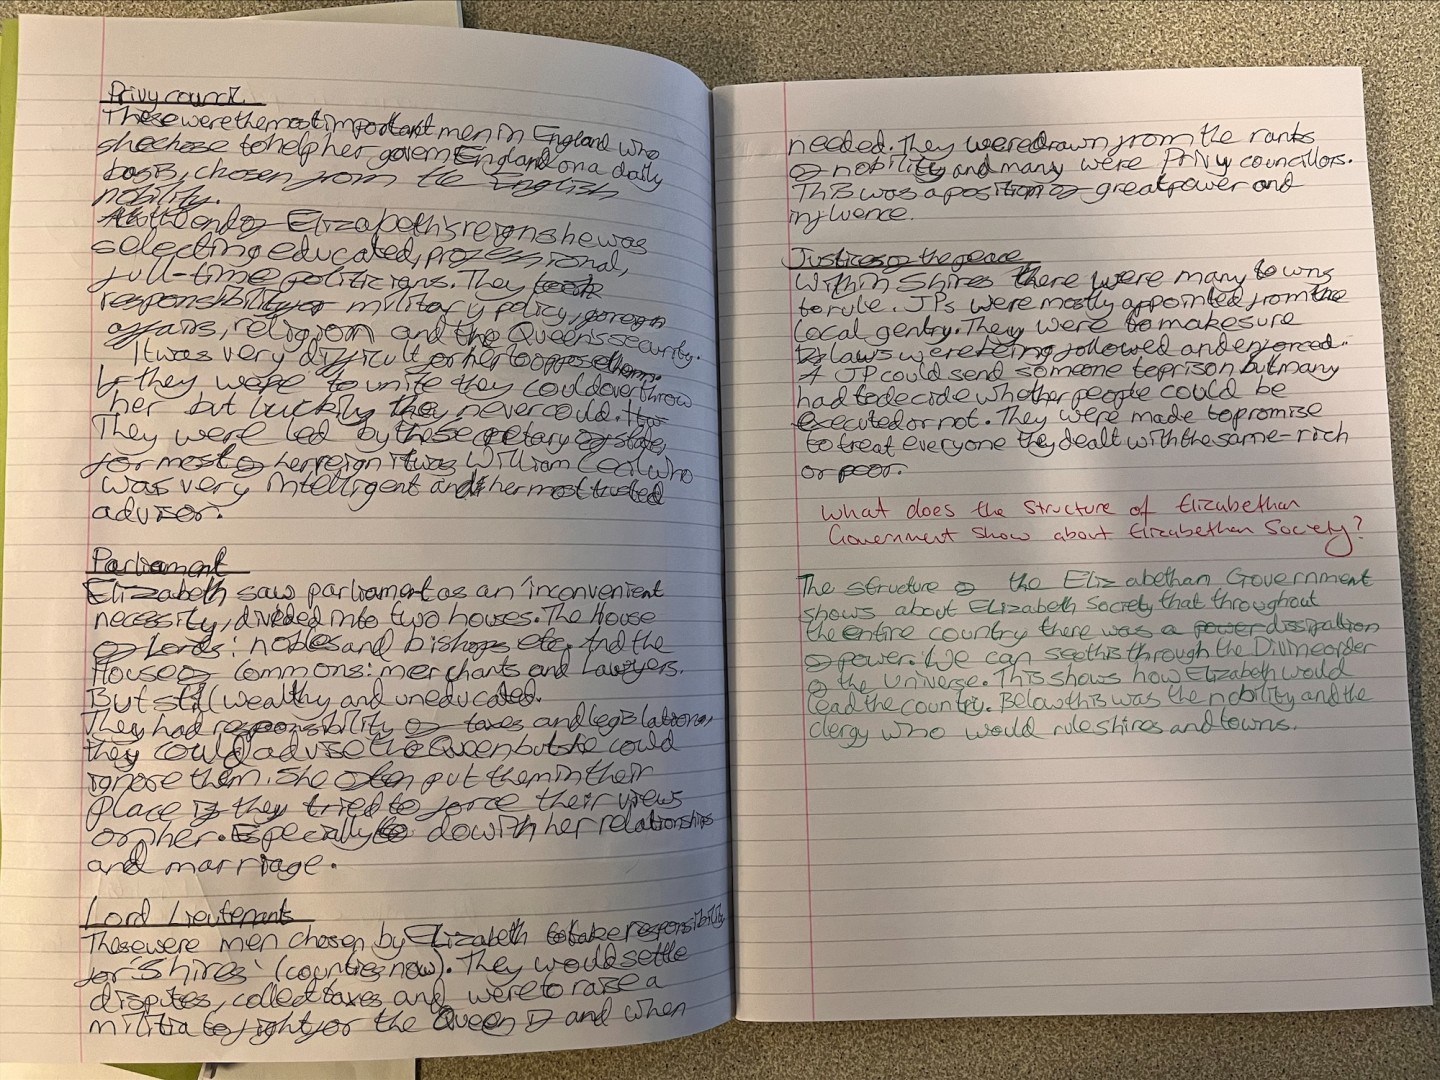 Privy council
These were the most important men in England who
she chose to help her govern England on a daily
basis, chosen from the English
nobility.
At the end of Elizabeth's reign she was
selecting educated, professional,
full-time politicians. They took
responsibility of military policy, foreign
affairs, religion and the Queens security.
It was very difficult for her to oppose them.
If they were to unite they could overthrow
her but luckily they never could.
They were led by the secretary of state,
for most of her reign it was William Cecil who
was very intelligent and her most trusted
advisor.
Parliament
Elizabeth saw parliament as an 'inconvenient
necessity, divided into two houses. The House
of Lords: nobles and bishops etc. And the
House of Commons: merchants and Lawyers.
But still wealthy and uneducated.
They had responsibility of taxes and legislations,
they could advise the Queen but she could
ignore them. She often put them in their
place if they tried to force their views
on her. Especially to do with her relationships
and marriage.
Lord Lieutenants
These were men chosen by Elizabeth to take responsibility
for 'Shires' (counties now). They would settle
disputes, collect taxes and were to raise a
militia to fight for the Queen if and when
needed. They were drawn from the ranks
of nobility and many were Privy councillors.
This was a position of great power and
influence.
Justices of the peace
Within Shires there were many towns
to rule. JPs were mostly appointed from the
local gentry. They were to make sure
laws were being followed and enforced.
A JP could send someone to prison but many
had to decide whether people could be
executed or not. They were made to promise
to treat everyone they dealt with the same - rich
or poor.
What does the structure of Elizabethan
Government show about Elizabethan Society?
The structure of the Elizabethan Government
shows about Elizabeth Society that throughout
the entire country there was a power dissipation
of power. We can see this through the Divine order
of the Universe. This shows how Elizabeth would
lead the country. Below this was the nobility and the
clergy who would rule shires and towns.